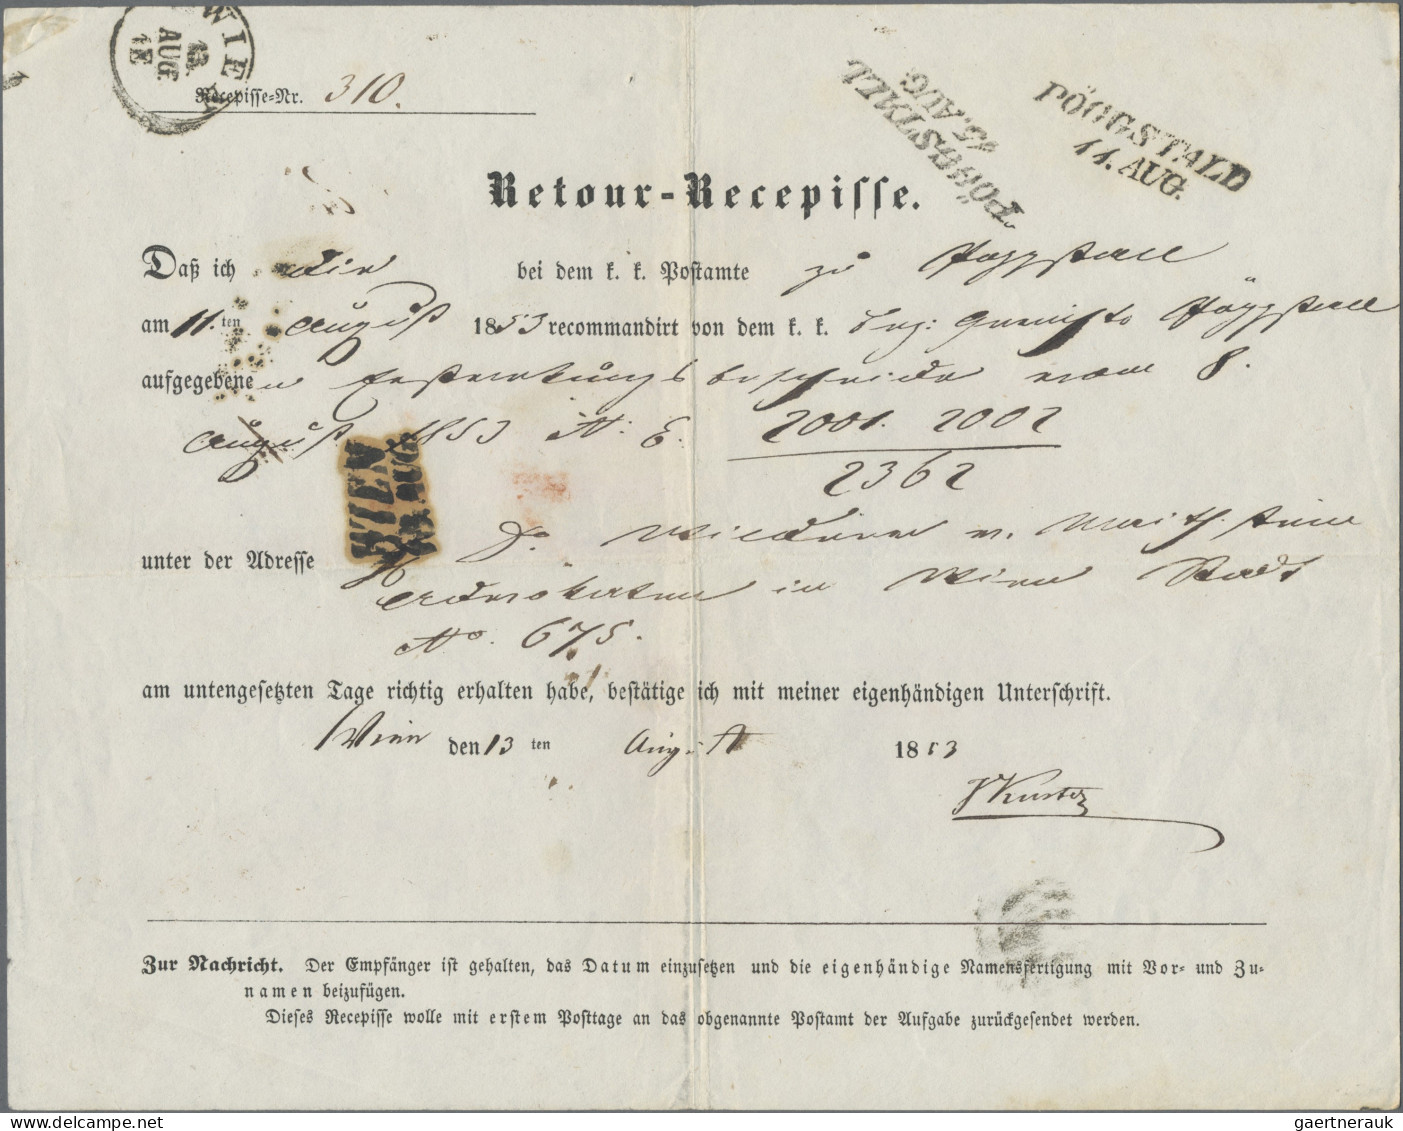 WIEN
13
AUG.
1E
Recepisse-Nr. 310.
PÖGGSTALL
15. AUG
PÖGGSTALD
11. AUG.
Retour-Recepisse.
Daß ich die bei dem k. k. Postamte zu Pöggstall
am 11. ten August 1853 recommandirt von dem k. k. Bez: Gerichte Pöggstall
aufgegebenen vom 8.
August 1853 N: E. 2001. 2002
2362
WIEN
13. AUG.
unter der Adresse Dr.
Advokaten in Wien Stadt
No. 675.
am untengesetzten Tage richtig erhalten habe, bestätige ich mit meiner eigenhändigen Unterschrift.
Wien den 13 ten August 1853
Zur Nachricht. Der Empfänger ist gehalten, das Datum einzusetzen und die eigenhändige Namensfertigung mit Vor- und Zu-
namen beizufügen.
Dieses Recepisse wolle mit erstem Posttage an das obgenannte Postamt der Aufgabe zurückgesendet werden.
gaertnerauk @ delcampe.net